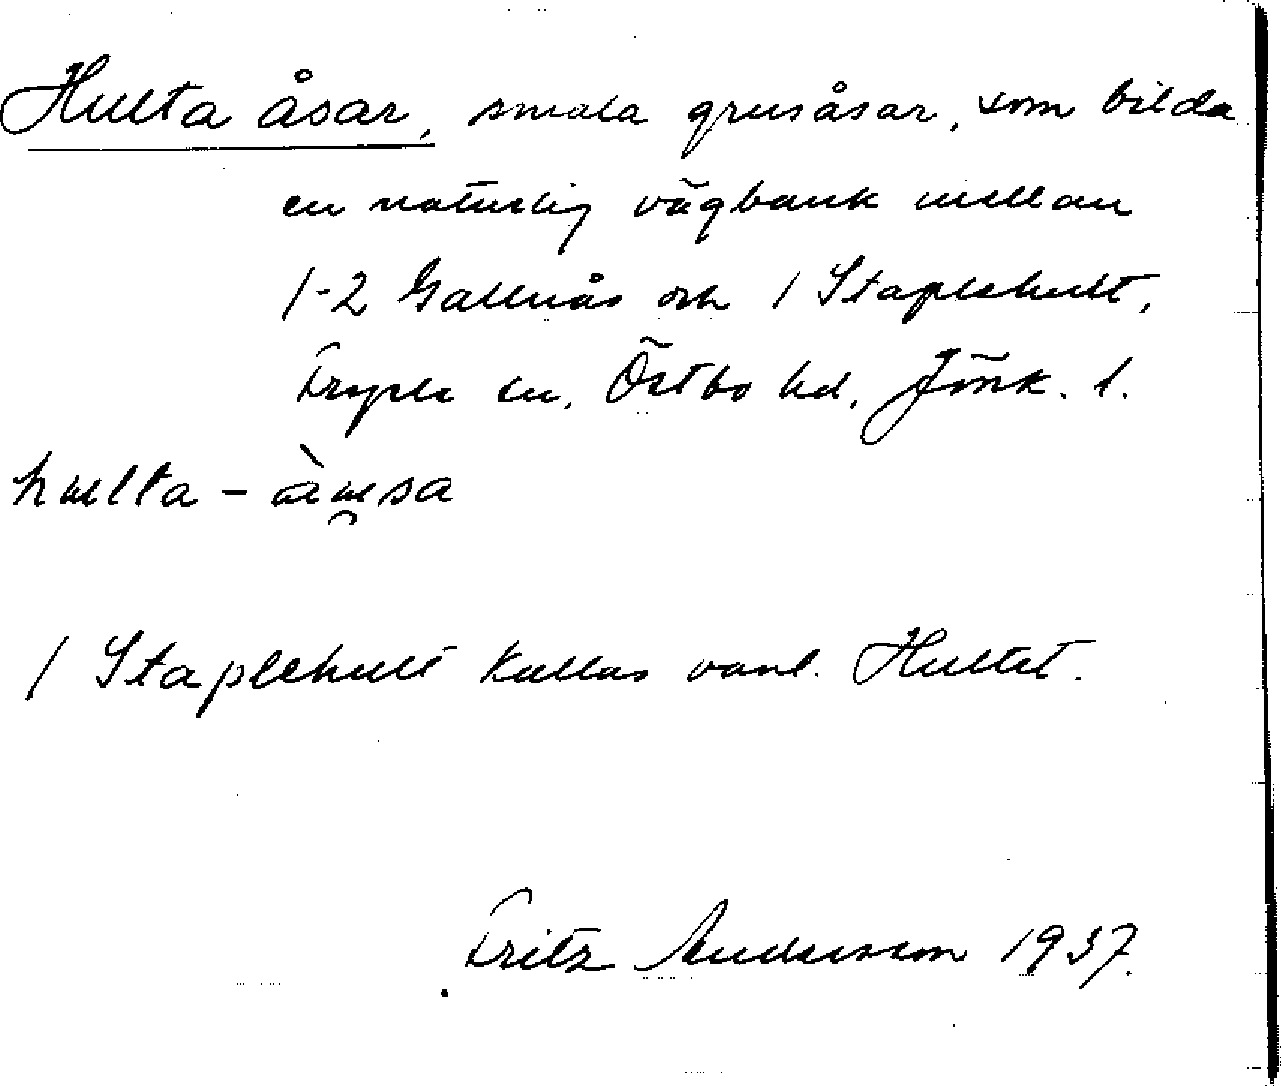 Hulta åsar, smala grusåsar, som bilda
en naturlig vägbank mellan
1-2 Gallnås och 1 Staplehult,
Fryele sn, Östbo hd, Jönk. l.
hulta - àu̯sa
1 Staplehult kallas vanl. Hultet.
Fritz Andersson 1937.